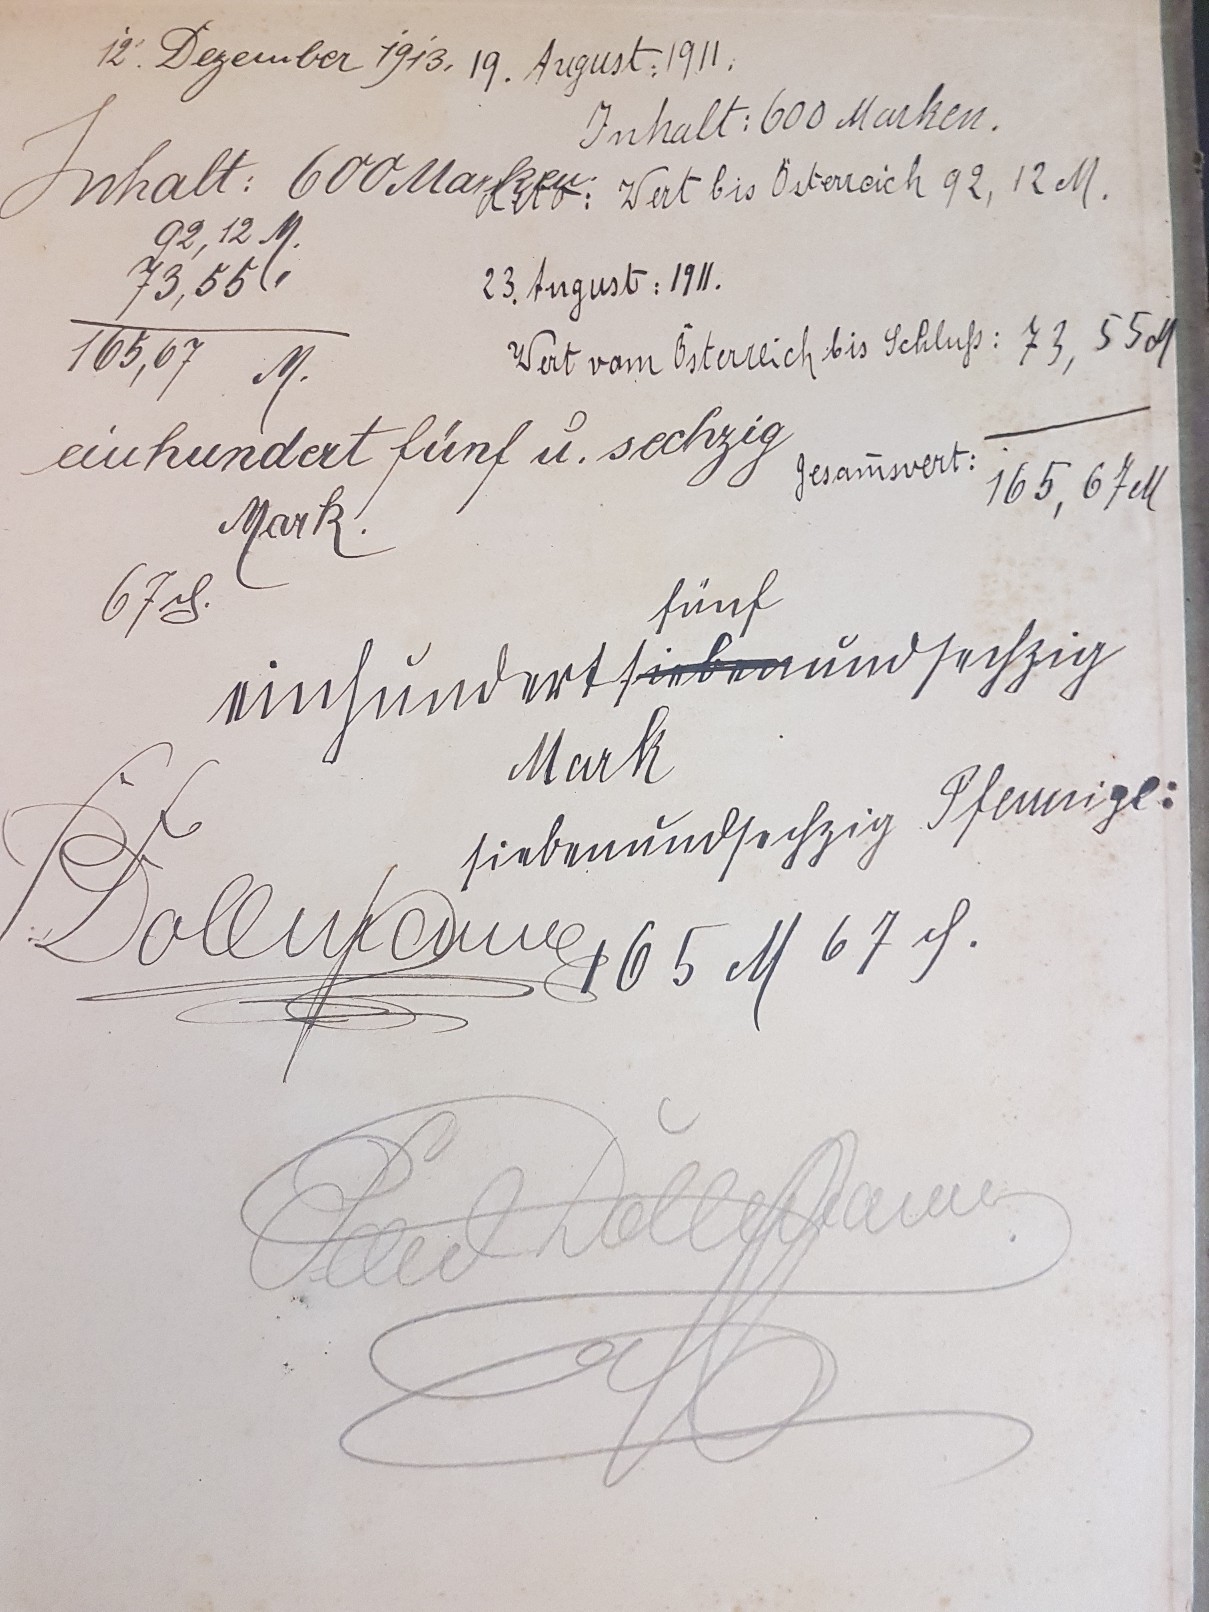 12. Dezember 1913. 19. August: 1911.
Inhalt: 600 Marken.
Inhalt: 600 Marken
dtto: Wert bis Österreich 92, 12 M.
92, 12 M.
73, 55 "
165,67 M.
23. August: 1911.
Wert vom Österreich bis Schluß: 73, 55 M
Gesam̄swert: 165, 67 M
einhundert fünf u. sechzig
Mark.
67 ₰.
fünf
einhundertsiebenundsechzig
Mark
siebenundsechzig Pfennige:
165 M 67 ₰.
Dollmann
Dollmann